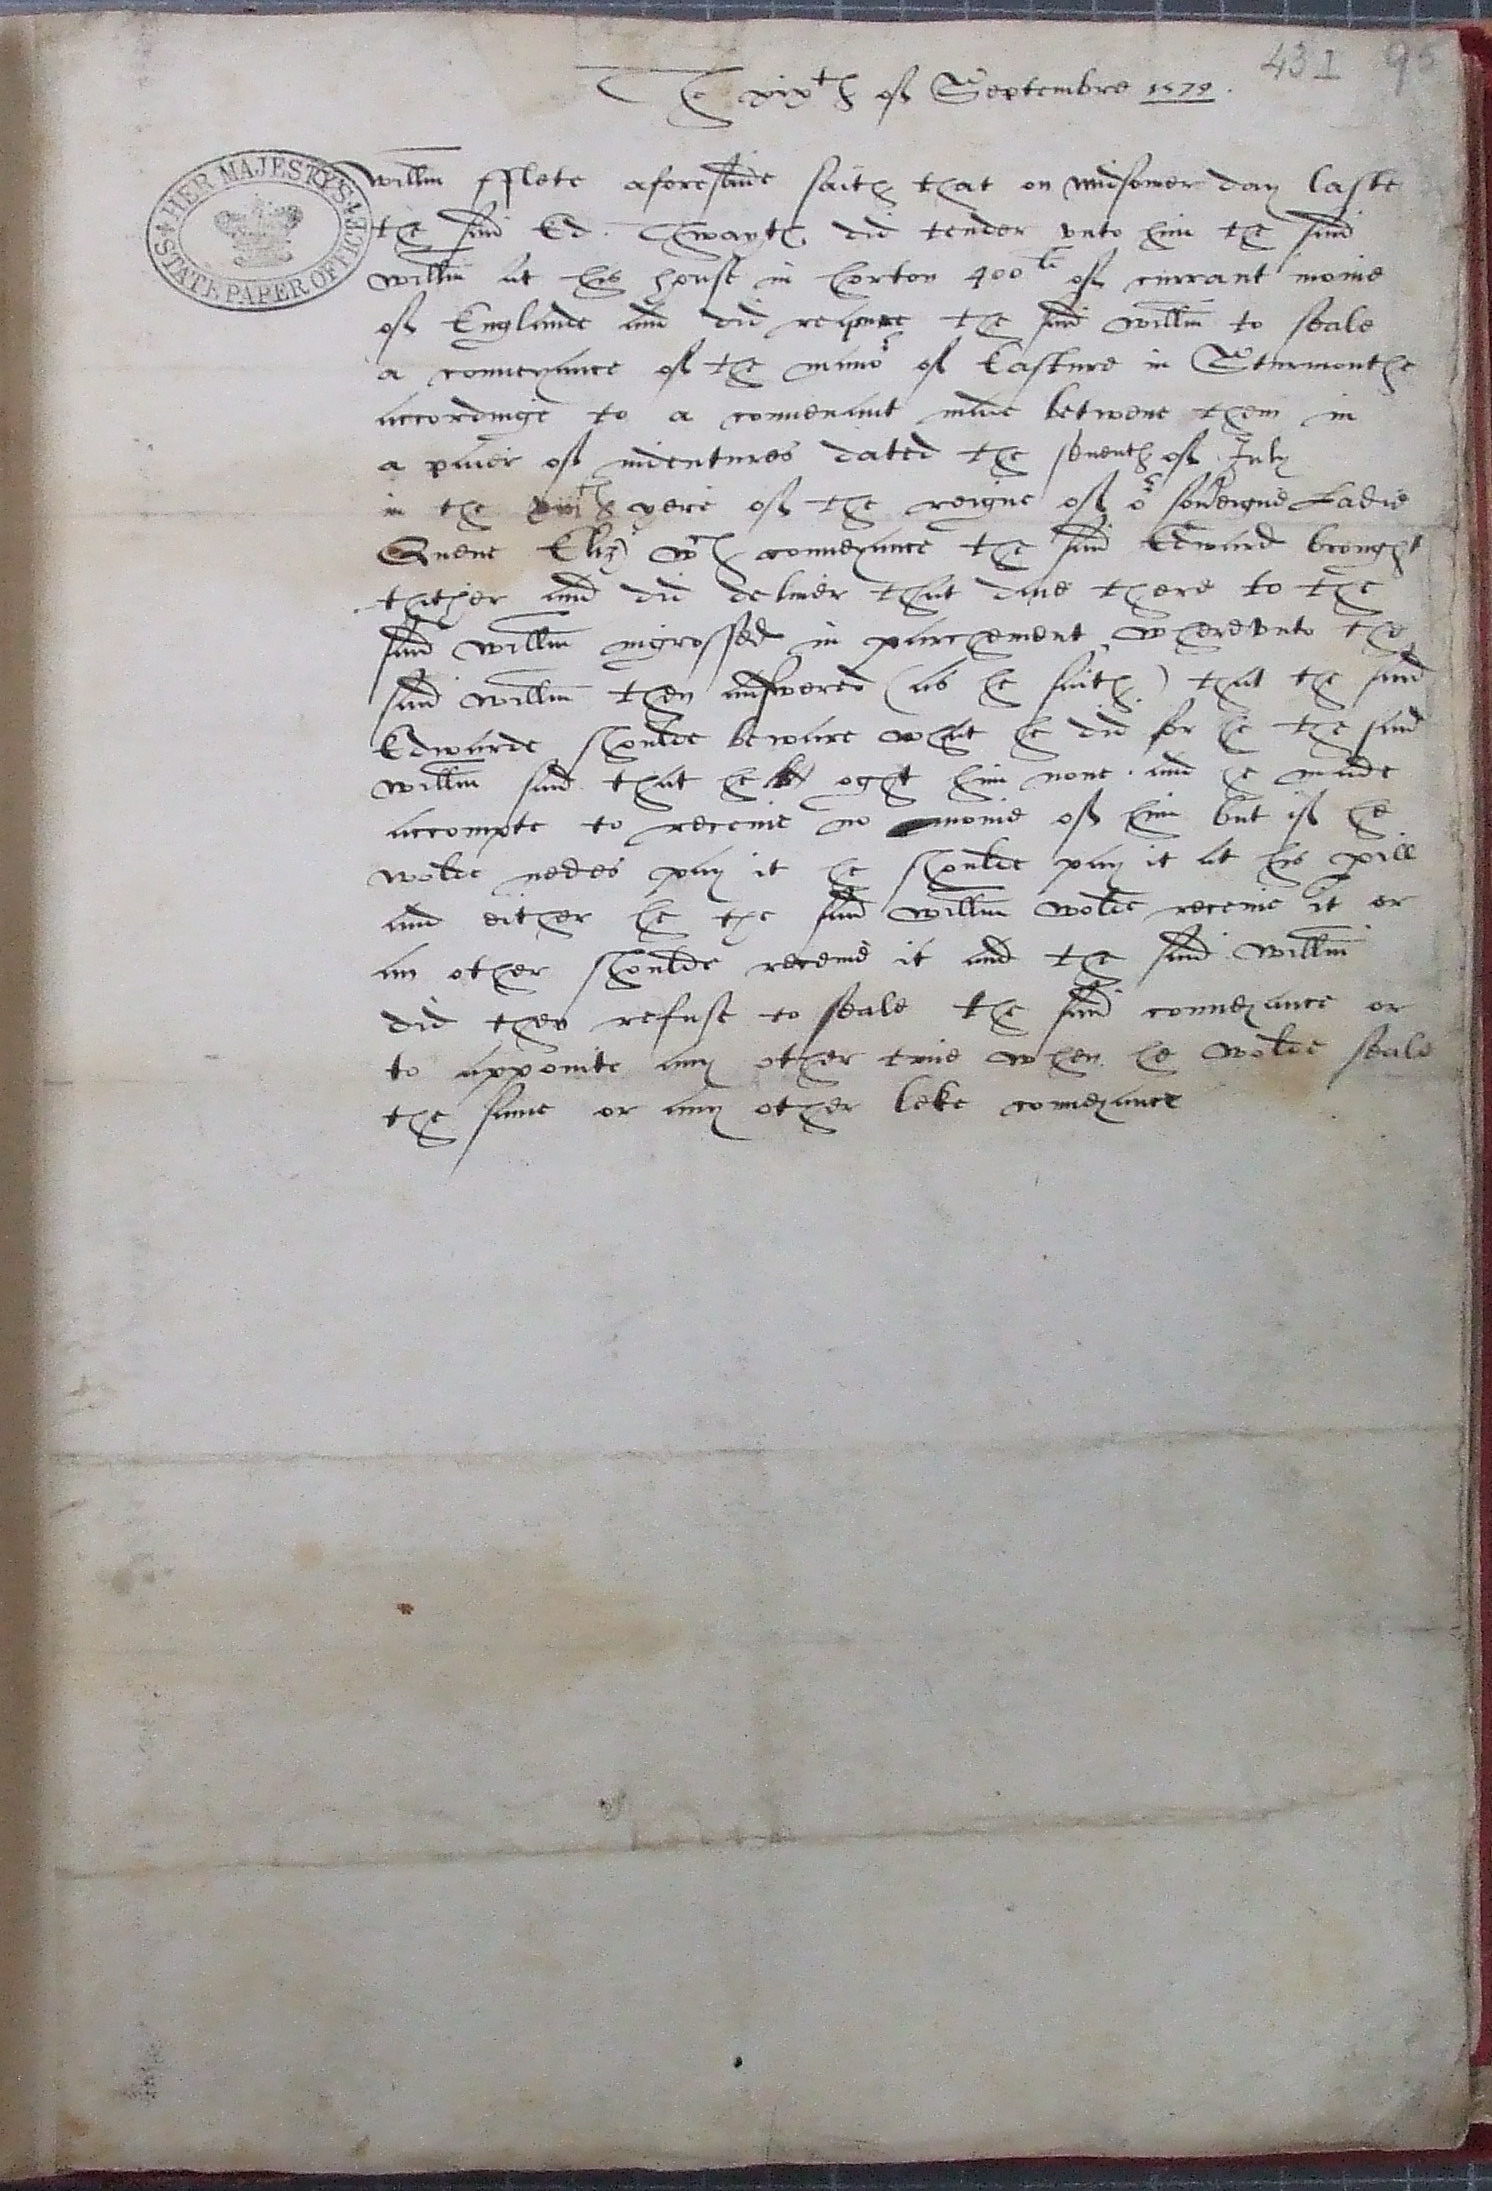 431 95
The xixth of Septembre 1579.
HER MAJESTY'S STATE PAPER OFFICE
Willm fflete aforesaide saith that on midsomer day laste
the said Ed. Thwayts did tender vnto him the said
Willm at his house in horton 400li of currant monie
of Englande and did requure the said Willm to seale
a conueyance of the mano'r of Easture in Sturmouthe
accordinge to a conuenaunt made betwene them in
a paier of indentures dated the seuenth of July
in the yere of the reigne of o'r soueigne Ladie
Quene Eliz wch conueyance the said Edward brought
thither and did deliuer that daie there to the
said Willm ingrossed in parchement wherevnto the
said Willm then answered (as he saith) that the said
Edwarde shoulde beware what he did for he the said
Willm said that he oght him none. and he made
accompte to receiue no monie of him but if he
wolde nedes pay it he shoulde pay it at his pill
and either he the said Willm wolde receiue it or
an other shoulde receiue it and the said Willm
did then refuse to seale the said conueyance or
to appointe any other time when he wolde seale
the same or any other leke conueyance